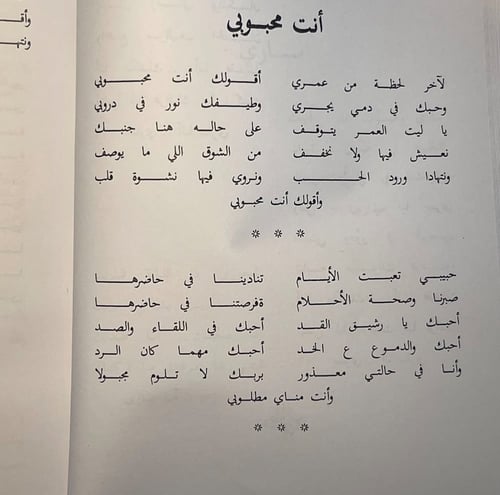 وأقـ
ونتهـ
أنت محبوبي
لآخر لحظة من عمري أقولك أنت محبوبي
وحبك في دمي يجري وطيفك نور في دروبي
يا ليت العمر يتوقف على حاله هنا جنبك
نعيش فيها ولا نخفف من الشوق اللي ما يوصف
ونتهادا ورود الحب ونروي فيها نشوة قلب
وأقولك أنت محبوبي
* * *
حبيبي تعبت الأيام تنادينا في حاضرها
صبرنا وصحة الأحلام ةفرصتنا في حاضرها
أحبك يا رشيق القد أحبك في اللقاء والصد
أحبك والدموع ع الخد أحبك مهما كان الرد
وأنا في حالتي معذور بربك لا تلوم مجبولا
وأنت مناي مطلوبي
* * *